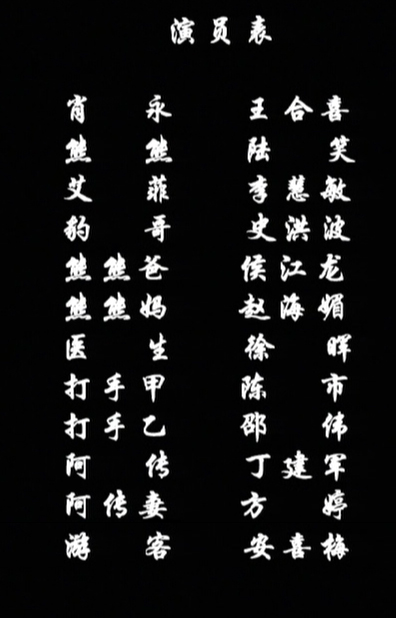 演员表
肖永 王合喜
熊熊 陆笑
艾菲 李慧敏
豹哥 史洪波
熊熊爸 侯江龙
熊熊妈 赵海媚
医生 徐晖
打手甲 陈市
打手乙 邵伟
阿传 丁建军
阿传妻 方婷
游客 安喜梅